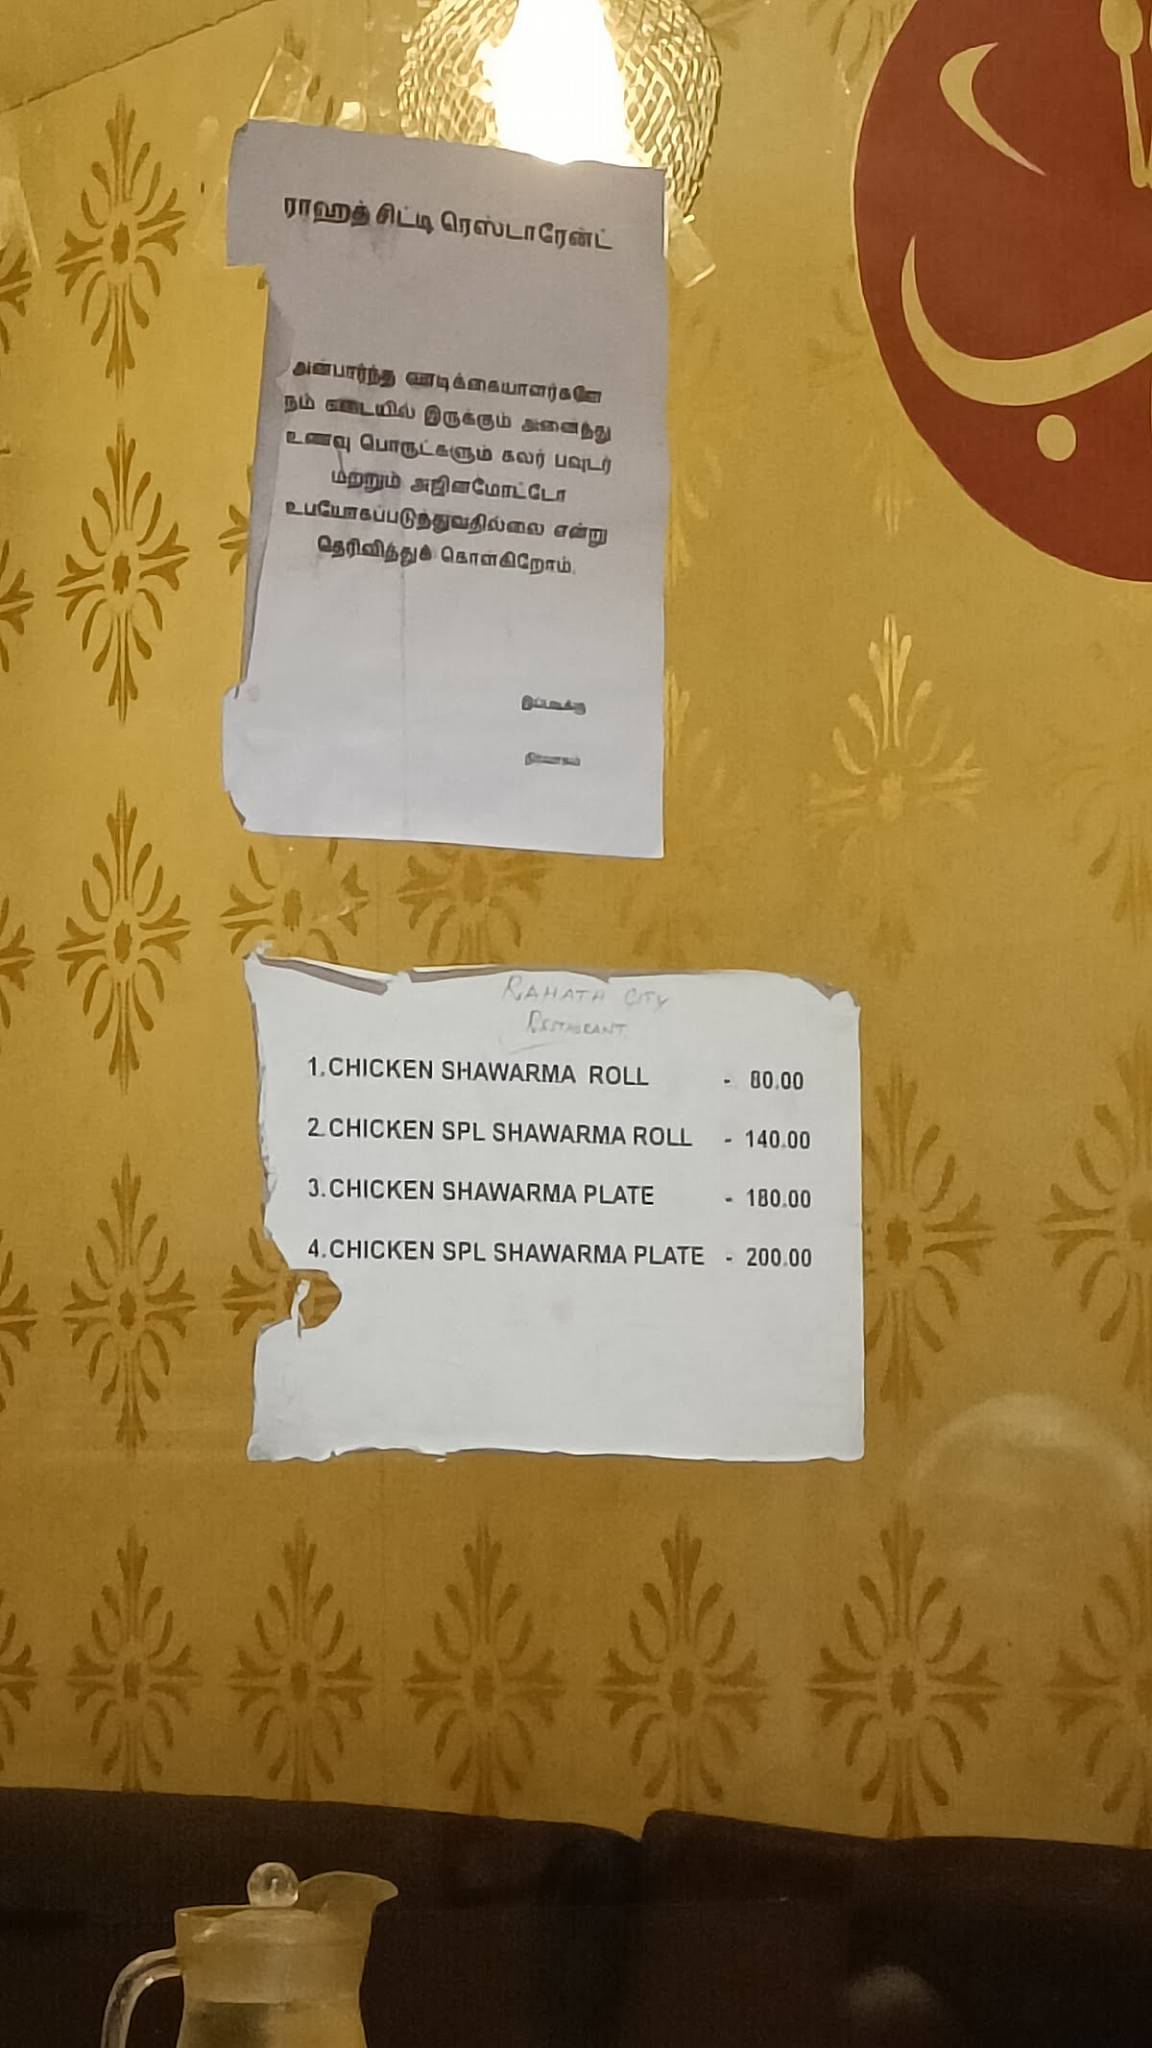 ராஹத் சிட்டி ரெஸ்டாரேன்ட்
அன்பார்ந்த வாடிக்கையாளர்களே
நம் கடையில் இருக்கும் அனைத்து
உணவு பொருட்களும் கலர் பவுடர்
மற்றும் அஜினமோட்டோ
உபயோகப்படுத்துவதில்லை என்று
தெரிவித்துக் கொள்கிறோம்.
இப்படிக்கு
நிர்வாகம்
RAHATH CITY
RESTAURANT
1.CHICKEN SHAWARMA ROLL - 80.00
2.CHICKEN SPL SHAWARMA ROLL - 140.00
3.CHICKEN SHAWARMA PLATE - 180.00
4.CHICKEN SPL SHAWARMA PLATE - 200.00